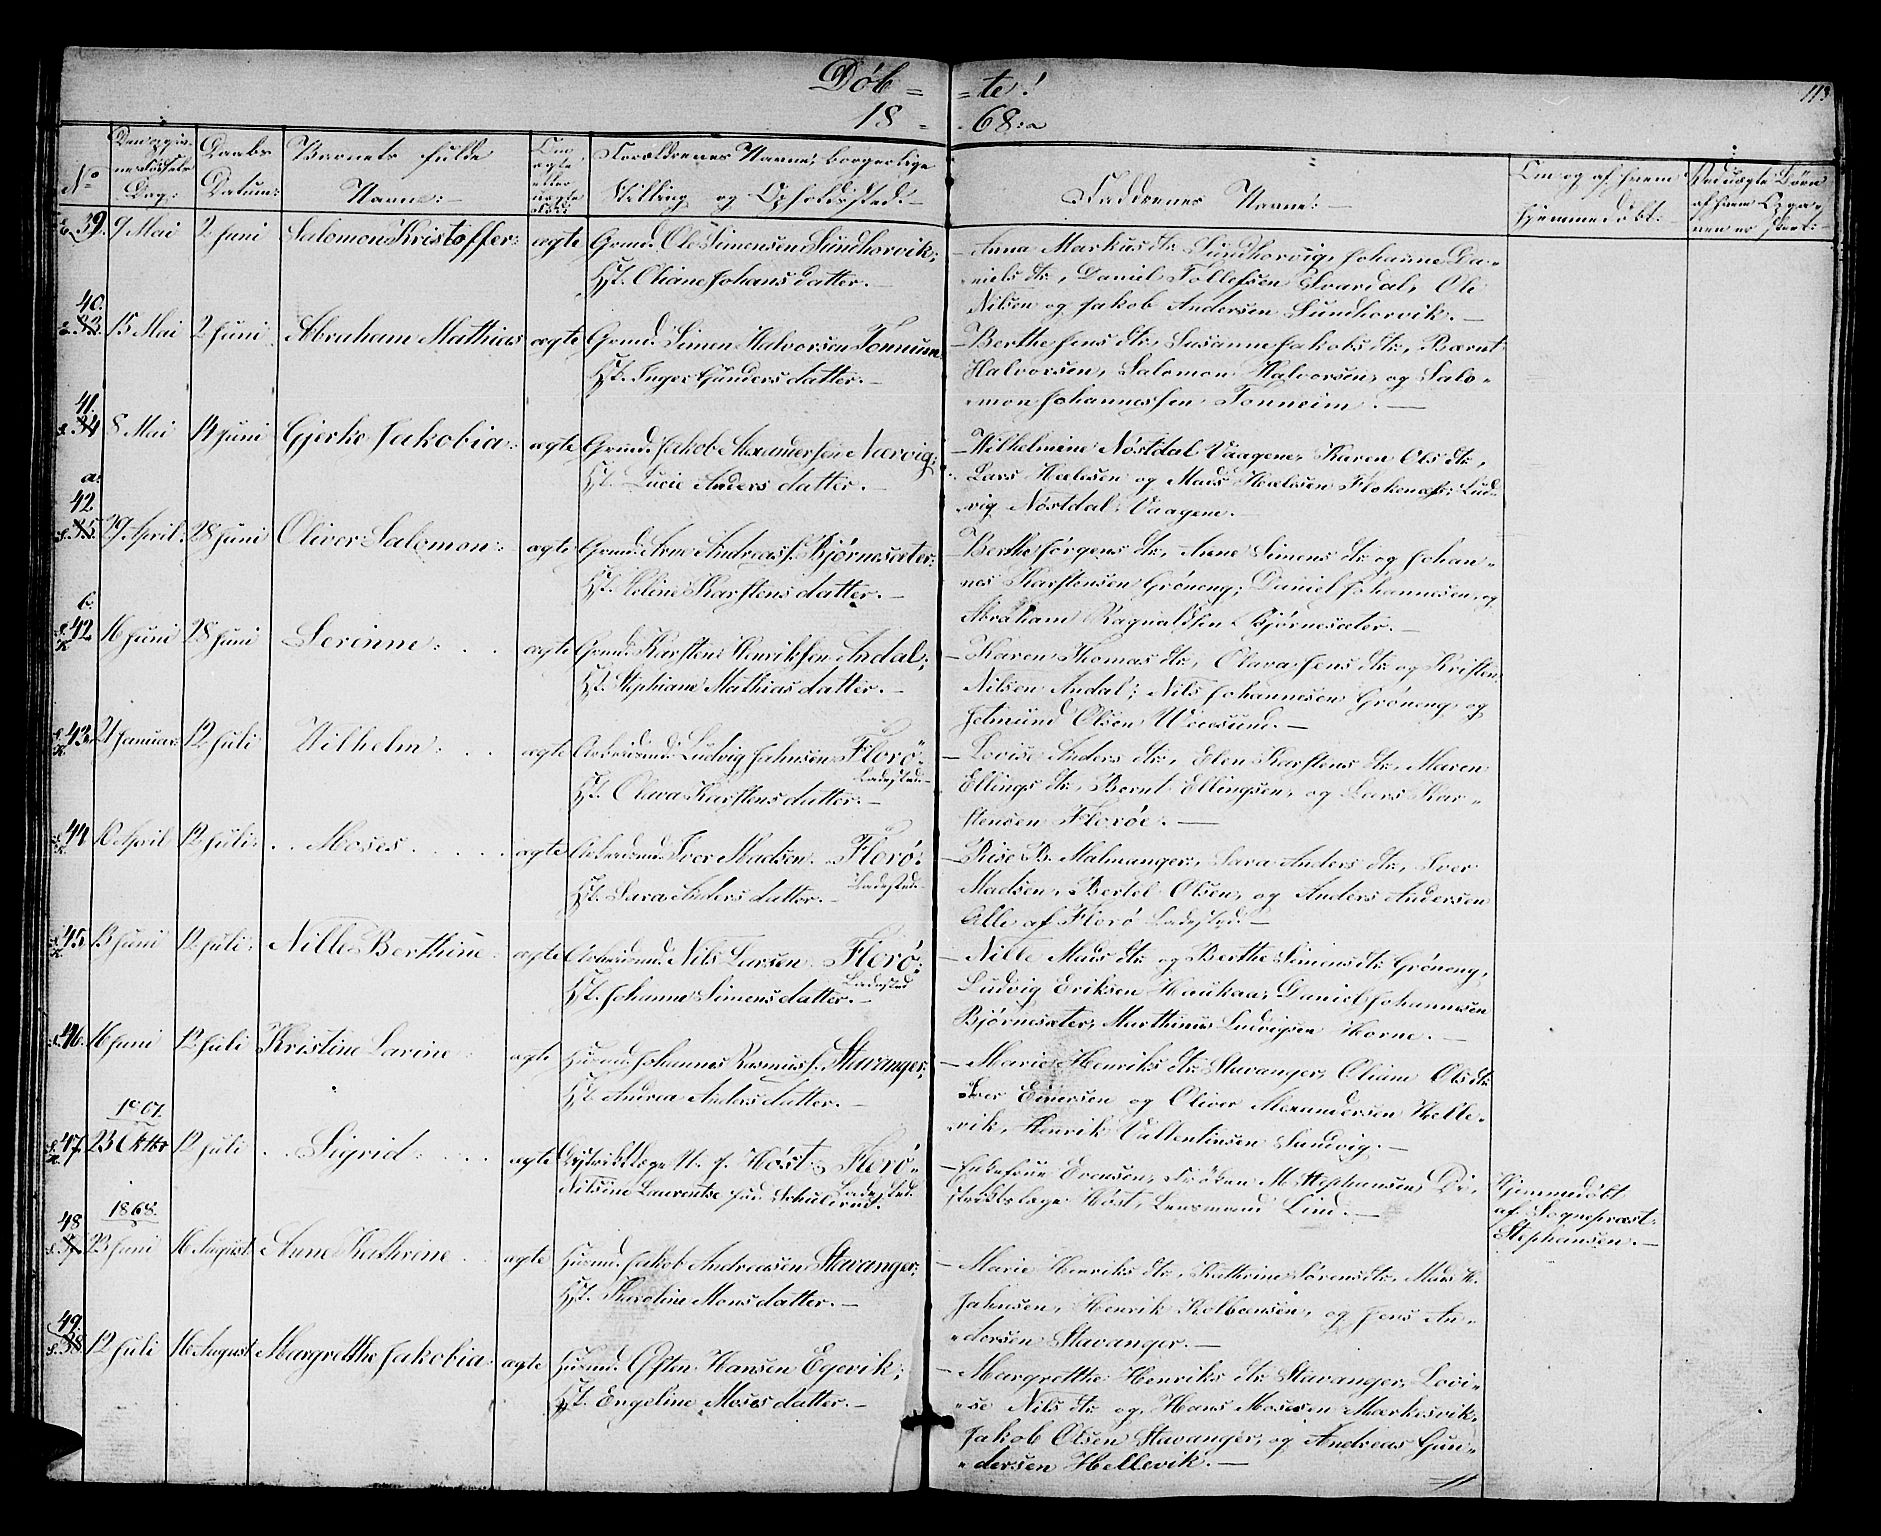 Døb = = te!
18 = 68:
113
No
Den opgiv-
ne Fødsels
Dag:
Daabs
Datum:
Barnets fulde
Navne:
Om
ægte
eller
uægte
født:
Forældrenes Navne, borgerlige
Stilling og Opholdssted:
Faddrenes Navne:
Om og af hvem
hjemmedøbt:
Ved uægte Børn
af hvem Opga-
ven er skeet:
39. 9 Mai 2 Juni Salomon Kristoffer: ægte Grmd. Ole Simensen Sundhorvik;
H. Oliane Johansdatter.
Anna Markusdtr Sundhorvig, Johanne Da-
nielsdtr, Daniel Tollefsen Svardal, Ole
Nilsen og Jakob Andersen Sundhorvik.
40. 33. 15 Mai 2 Juni Abraham Mathias ægte Grmd. Simen Halvorsen Tonnum
H. Inger Gundersdatter.
Berthe Jensdtr, Susanne Jakobsdtr, Bernt
Halvorsen, Salomon Halvorsen, og Salo-
mon Johannessen Tonneim.
41. 34 8 Mai 14 Juni Gjerke Jakobia: ægte Grmd. Jakob Alexandersen Nærvig;
H. Lucie Andersdatter.
Wilhelmine Nøstdal Vaagene, Karen Olsdtr,
Lars Hælesen og Mads Hælesen Flokenæs; Lud-
vig Nøstdal, Vaagene.
a.
42 35. 29 April: 28 Juni Oliver Salomon: ægte Grmd. Arne Andreass. Bjørnesæter:
H. Karstensdatter.
Berthe Jørgensdtr, Anne Simensdtr og Johan-
nes Karstensen Grøneng; Daniel Johannesen, og
Abraham Ragnaldsen Bjørnesæter.
b.
42 16 Juni 28 Juni Serinne: ægte Grmd. Karsten Henriksen Andal;
H. Stephiane Mathiasdatter.
Karen Thomasdtr, Olava Jensdtr og Kristen
Nilsen Andal; Nils Johannesen Grøneng, og
Jetmund Olsen
43. 21 Januar: 12 Juli Vilhelm: ægte Arbeidsmd. Ludvig Jahnsen Florø
Ladested
H. Olava Karstensdatter.
Lovise Andersdtr, Elen Karstensdtr, Maren
Ellingsdtr, Bernt Ellingsen, og Lars Kar-
stensen Florøe.
44 10 April 12 Juli: Moses ægte Arbeidsmd. Iver Madsen Florø:
Ladested
H. Sara Andersdatter.
B. Malmanger, Sara Andersdtr, Iver
Madsen, Bertel Olsen, og Anders Andersen
Alle af Florø Ladested.
45. 13 Juni 12 Juli: Nille Berthine ægte Arbeidsmd. Nils Larsen Florø:
Ladested
H. Johanne Simensdatter.
Nille Madsdtr og Berthe Simensdtr Grøneng,
Ludvig Eriksen Haukaa, Daniel Johannesen
Bjørnesæter, Marthinus Ludvigsen Horne.
46. 16 Juni 12 Juli Kristine Larine ægte Husmd. Johannes Rasmuss. Stavanger;
H. Andrea Andersdatter.
Marie Henriksdtr Stavanger, Oliane Olsdtr
Iver Einersen og Oliver Alexandersen Helle-
vik, Henrik Vallentinsen Sandvig.
1867.
47. 23 Oktbr 12 Juli Sigrid: ægte Distriktslæge N. J. Høst Florø
Nilsine Laurentze fød. Schulerud. Ladested
Enkefrue Evensen, Frøken M. Stephansen, Di-
striktslæge Høst, Lensmand Lind.
Hjemmedøbt
af Sognepræst
Stephansen.
1868.
48 37. 23 Juni 16 August Anne Kathrine ægte Husmd. Jakob Andreasen Stavanger;
H. Karoline Monsdatter.
Marie Henriksdtr, Kathrine Sørensdtr, Mads H.
Jahnsen, Henrik Kolbeensen, og Jens An-
dersen Stavanger.
49. 38 12 Juli 16 August Margrethe Jakobia ægte Husmd. Østen Hansen Egevik;
H. Engeline Mosesdatter.
Margrethe Henriksdtr Stavanger, Lovi-
se Nilsdtr og Hans Mosesen Mærkesvik,
Jakob Olsen Stavanger, og Andreas Gun-
dersen Hellevik.